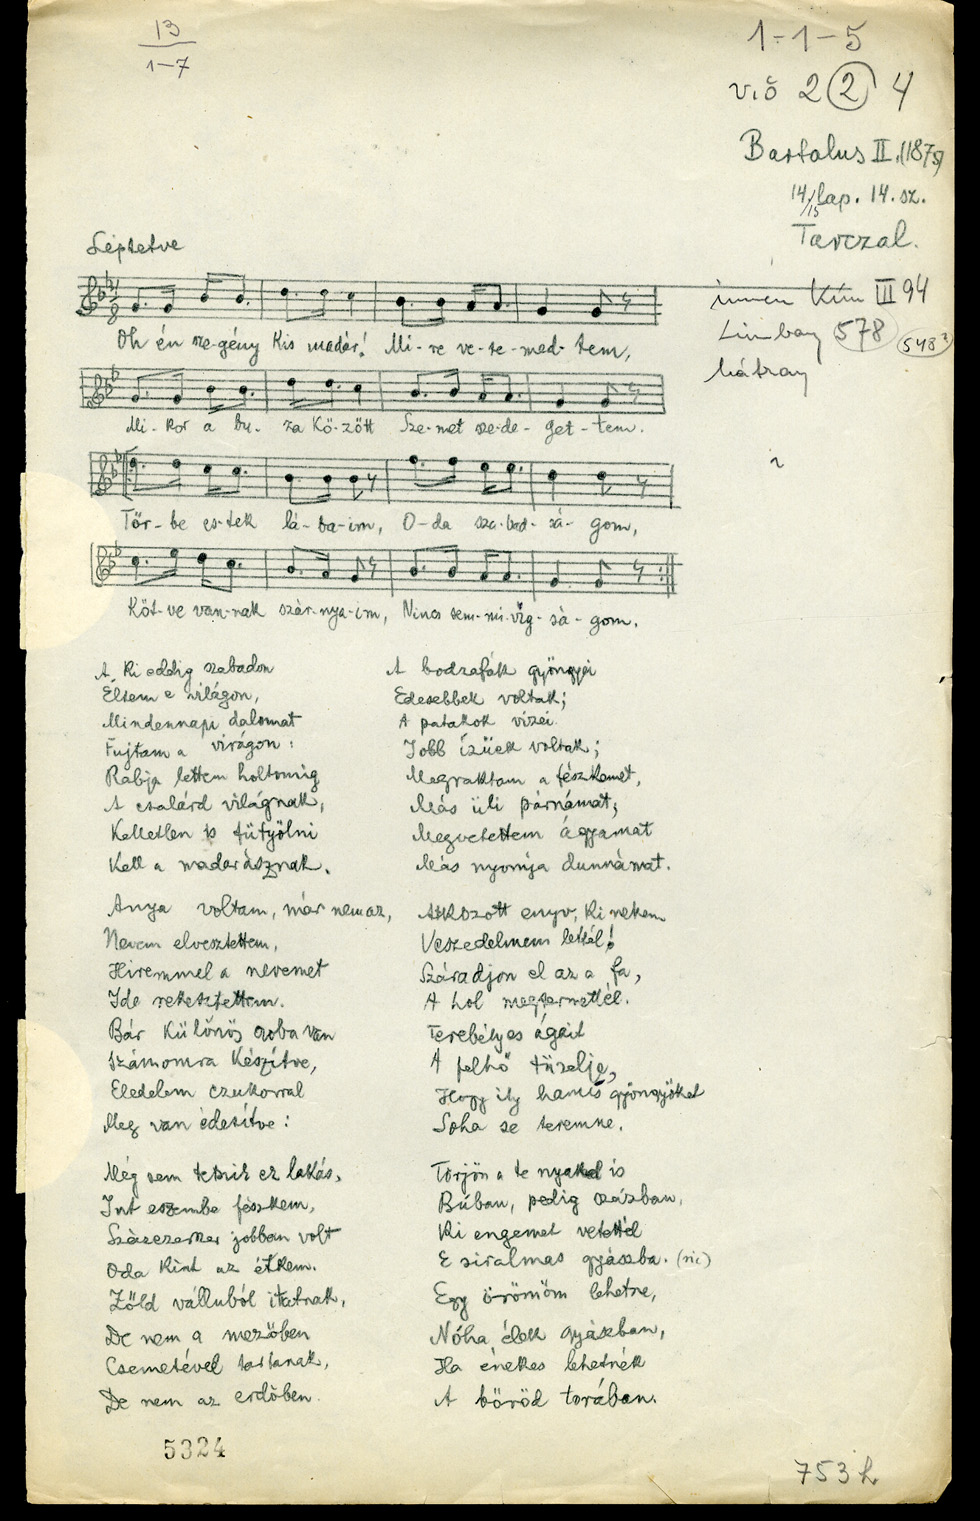 13
1–7
1–1–5
vió 2 2 4
Bartalus II. (1875)
14/15 lap. 14. sz.
Tarczal.
Léptetve
innen Kún III 94
Limbay 578 548?
Mátray
Oh én sze-gény kis madár! Mi-re ve-te-med-tem,
Mi-kor a bu-za kö-zött Sze-met sze-de-get-tem.
Tör-be es-tek lá-ba-im, O-da sza-bad-sá-gom,
Köt-ve van-nak szár-nya-im, Nincs sem-mi vig-sá-gom.
A ki eddig szabadon
Éltem e világon,
Mindennapi dalomat
Fujtam a virágon:
Rabja lettem holtomig
A csalárd világnak,
Kelletlen is fütyölni
Kell a madarásznak.
Anya voltam, már nem az,
Nevem elvesztettem,
Hiremmel a nevemet
Ide rekesztettem.
Bár különös szoba van
Számomra készítve,
Eledelem czukorral
Meg van édesítve:
Még sem tetszik ez lakás,
Jut eszembe fészkem,
Százszorta jobban volt
Oda kint az étkem.
Zöldválluból itatnak,
De nem a mezőben
Csemetével tartanak,
De nem az erdőben.
A bodzafák gyöngyei
Edesebbek voltak;
A patakok vizei
Jobb ízüek voltak;
Megraktam a fészkemet,
Más üli párnámat;
Megvetettem ágyamat
Más nyomja dunnámat.
Átkozott enyv, ki nekem
Veszedelmem lettél!
Száradjon el az a fa,
A hol megtermettél.
Terebélyes ágait
A felhő tüzelje,
Hogy ily hamis gyöngyöket
Soha se teremne.
Törjön a te nyakad is
Búban, pedig százban,
Ki engemet vetettél
E siralmas gyászba. (sic)
Egy örömöm lehetne,
Nóha élek gyászban,
Ha énekes lehetnék
A böröd torában.
5324
753 h.